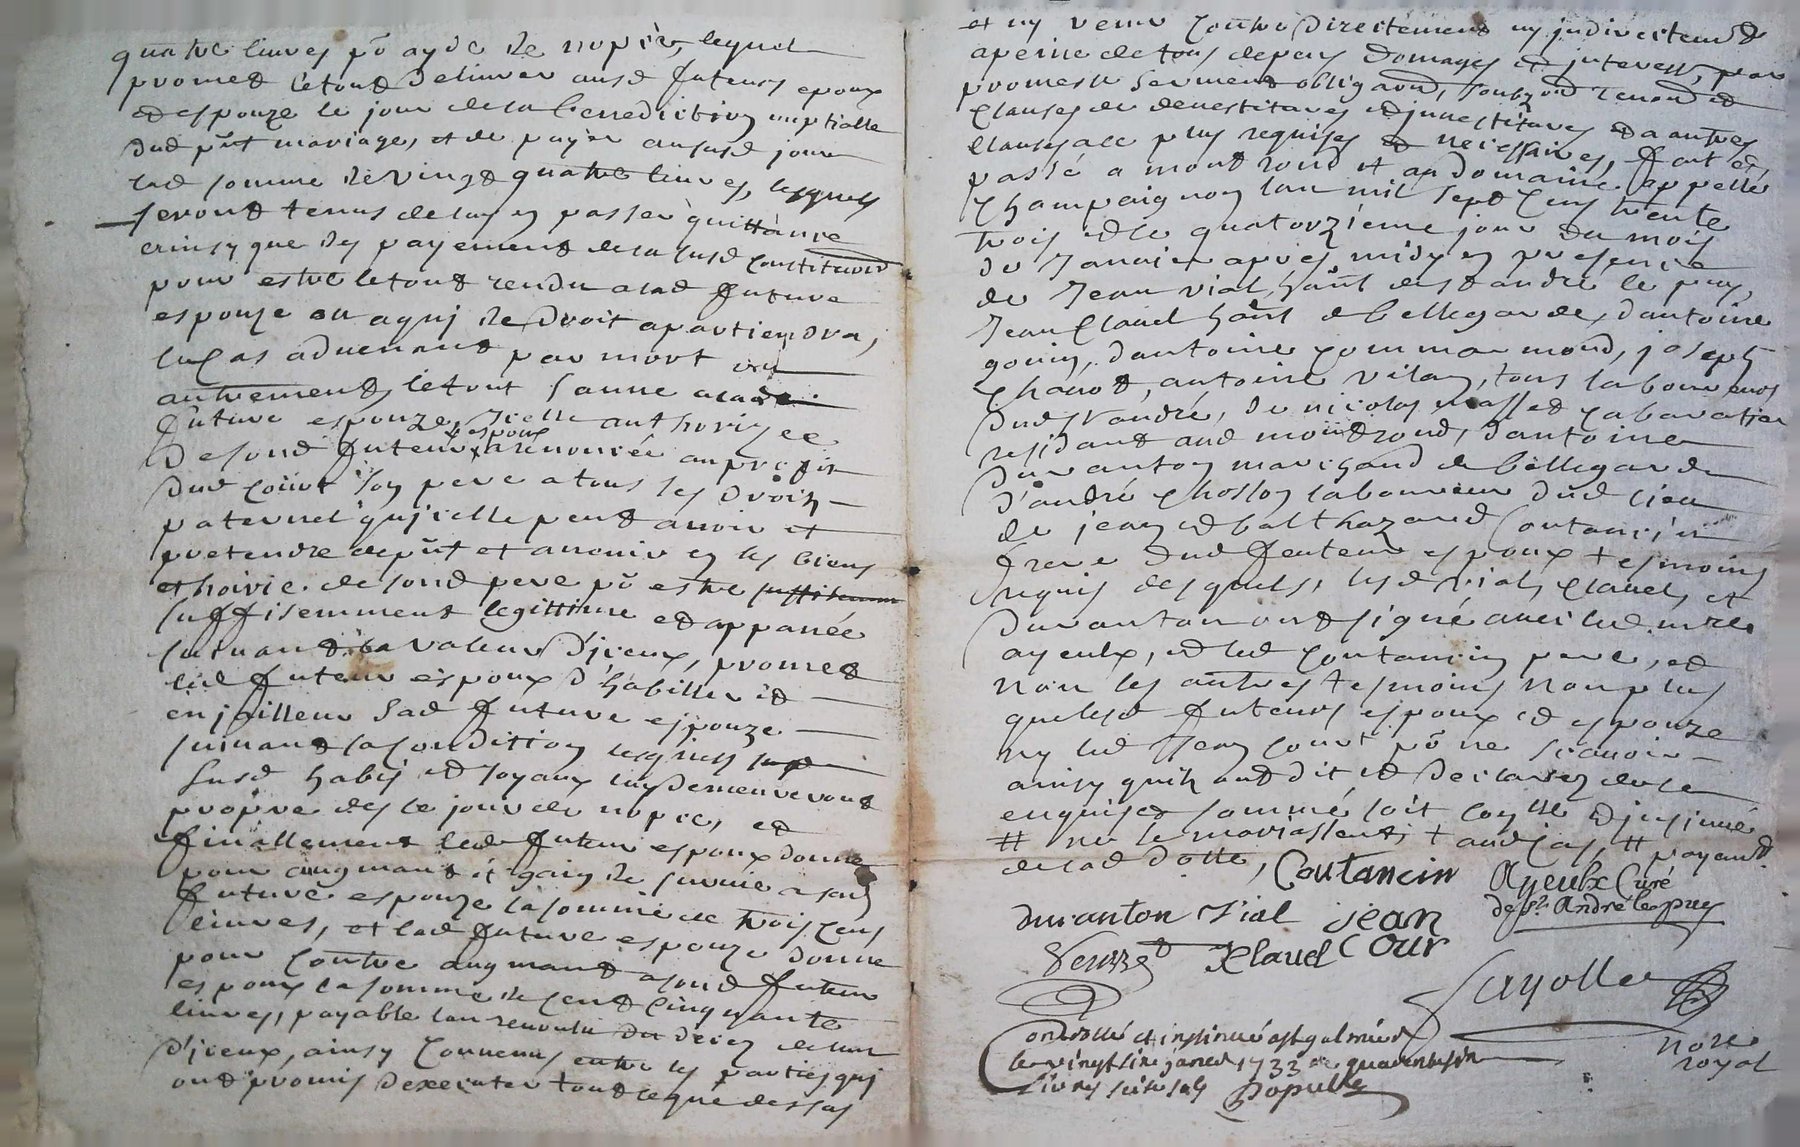 quatre liuves po ayde de nopces, lequel
promet letout deliurer ausd futeurs epoux
et espouze le jour de la benediction nuptialle
dud pnt mariage, et de payer au susd jour
lad somme de vingt quatre liures, lesquels
seront tenus de luy en passer quittance
einsy que des payement de la susd constitution
pour estre letout rendu a lad future
espouze ou a quj de droit apartiendra,
le cas aduenant par mort ou
autrement, letout sauue a lad
future espouze, jcelle authorizee
desond futeur espoux a renoncée au profit
dud court son pere a tous les droits
paternel qu'jcelle peut auoir et
pretendre de pnt et auenir en les biens
et hoirie de sond pere po estre
suffisemment legittime et appanée
suiuant la valeur d'jceux, promet
led futeur espoux d'habiller et
enjoiller sad future espouze
suiuant sa condition lesquels
susd habis et joyaux luy demeureront
propre des le jour de nopces, et
finallement led futeur espoux donne
pour augmant et gain de suruie a sad
future espouze la somme de trois cens
liures, et lad future espouze donne
pour contre augmant a sond futeur
espoux la somme de cent cinquante
liures, payable lan reuoulu du deces de lun
d'jceux, ainsy conuenus entre les parties quj
ont promis dexecuter tout ce que dessus
et ny venir contre directement ny jndirectement
a peine de tous depens domages et jnterests, par
promesse serment obligaon, soubzon renon et
clauses de deuestitures et jnuestitures et a autres
clauses ace plus requises et necessaires, fait et
passé a montrond et au domaine appellé
champaignon lan mil sept cens trente
trois et le quatorzieme jour du mois
de Januier apres midy en presence
de Jean vial hant de st andré le puy,
Jean Clauel hant de bellegarde, d'antoine
gouin, dantoine pommarmond, joseph
Chanot, antoine vilan, tous laboureurs
dud st andré, de nicolas masset cabaratier
residant aud montrond, dantoine
duranton marchand de bellegarde
d'andré chosson laboureur dud lieu
de jean et balthazard Coutancin
frere dud futeur espoux tesmoins
requis desquels, lesd vial, clauel, et
duranton ont signé auec led mre
ayeulx, et led coutancin pere, et
non les autres tesmoins non plus
que lesd futeurs espoux et espouze
ny led Jean court po ne scauoir
ainsy quils ont dit et declarez de ce
enquis et sommé soit conllé et jnsinué
# ne le mariassent, + aud cas, # payant
de lad dotte, Coutancin Ayeulx Curé
de st. André le puy
duranton Vial jean
Clauel Cour
Fayolle
nore
royal
Controllé et insinué a st galmier
le vingt six janer 1733
liures
Popule